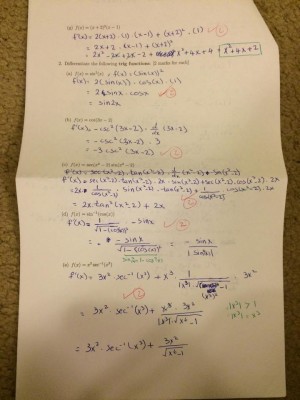 (g) f(x) = (x + 2)²(x − 1)
f'(x) = 2(x+2) · (1) · (x-1) + (x+2)² · (1)
= 2x+2 · (x-1) + (x+2)²
= 2x² - 2x + 2x - 2 + x² + 4x + 4 = x² + 4x + 2
2. Determine the following trig functions. [2 marks for each]
(a) f(x) = sin²(x) = f(x) = (sin(x))²
f'(x) = 2(sin(x)) · cos(x) · (1)
= 2 sinx · cosx
= sin2x
(b) f(x) = cot(3x − 2)
f'(x) = -csc² (3x-2) · d/dx (3x-2)
= -csc² (3x-2) · 3
= -3 csc² (3x-2)
(c) f(x) = sec(x² − 2) sin(x² − 2)
f'(x) = sec(x²-2) · tan(x²-2) · 2x · sin(x²-2) + sec(x²-2) · cos(x²-2) · 2x
= 2x tan²(x²-2) + 2x
(d) f(x) = sin⁻¹(cos(x))
f'(x) = 1/√1-(cosx)² · -sinx
= -sinx/√1-(cos(x))² = -sinx/|sinx|
(e) f(x) = x³ sec⁻¹(x³)
f'(x) = 3x² sec⁻¹(x³) + x³ · 1/|x³|·√(x³)²-1 · 3x²
= 3x² · sec⁻¹(x³) + x³ · 3x²/|x³|·√x⁶-1
|x³| > 1
|x³| = x³
= 3x² · sec⁻¹(x³) + 3x²/√x⁶-1